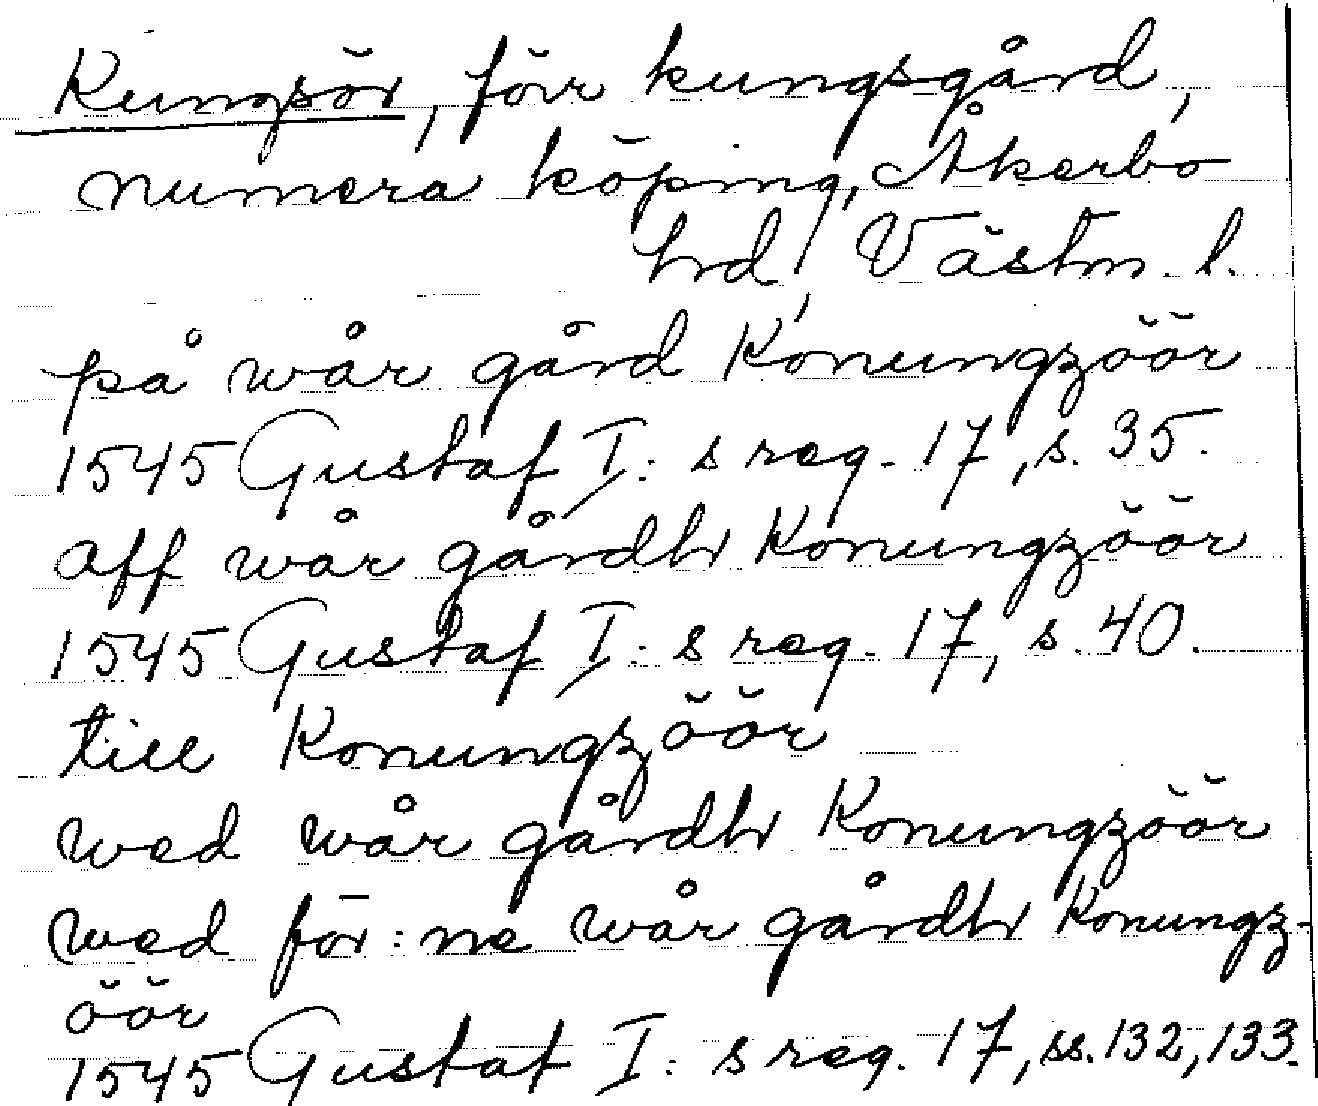 Kungsör, förr kungsgård,
numera köping, Åkerbo
hrd, Västm. l.
på wår gård Konungzöör
1545 Gustaf I: s reg. 17, s. 35.
aff wår gårdh Konungzöör
1545 Gustaf I: s reg. 17, s. 40.
till Konungzöör
wed wår gårdh Konungzöör
wed för: ne wår gårdh Konungz-
öör
1545 Gustaf I: s reg. 17, ss. 132, 133.